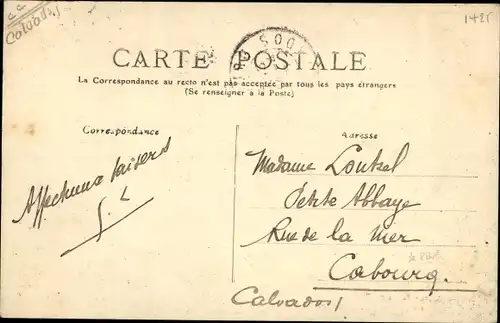 CC
Calvados
1425
CARTE POSTALE
La Correspondance au recto n'est pas acceptée par tous les pays étrangers
(Se renseigner à la Poste)
Correspondance
Adresse
Affectueux baisers
S. L
Madame
Petite Abbaye
Rue de la Mer
Cabourg.
Calvados